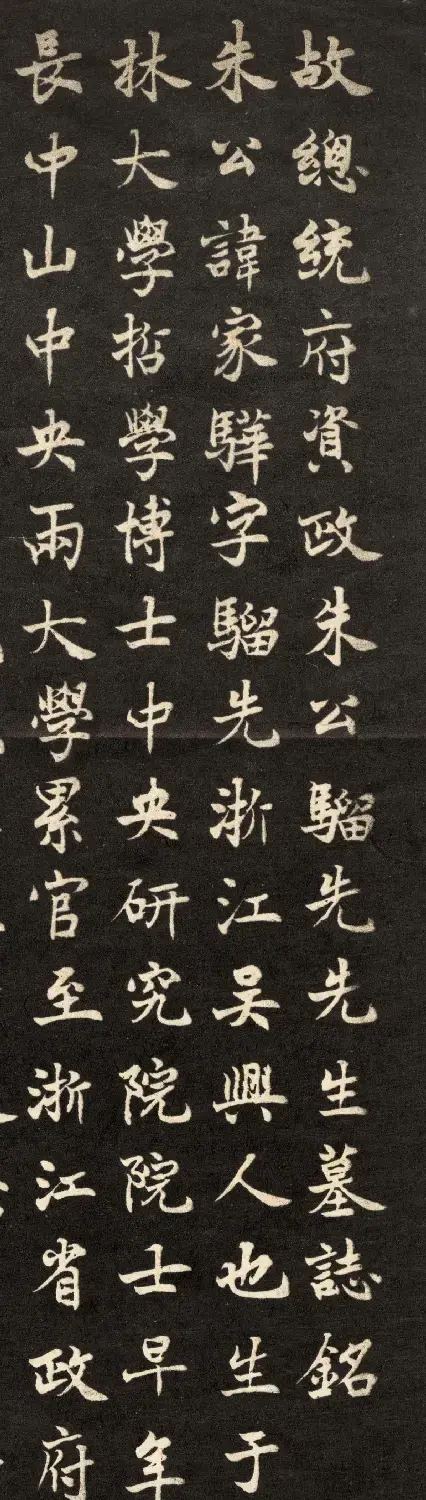 故總統府資政朱公騮先先生墓誌銘
朱公諱家驊字騮先浙江吴興人也生于
林大學哲學博士中央研究院院士早年
長中山中央兩大學累官至浙江省政府